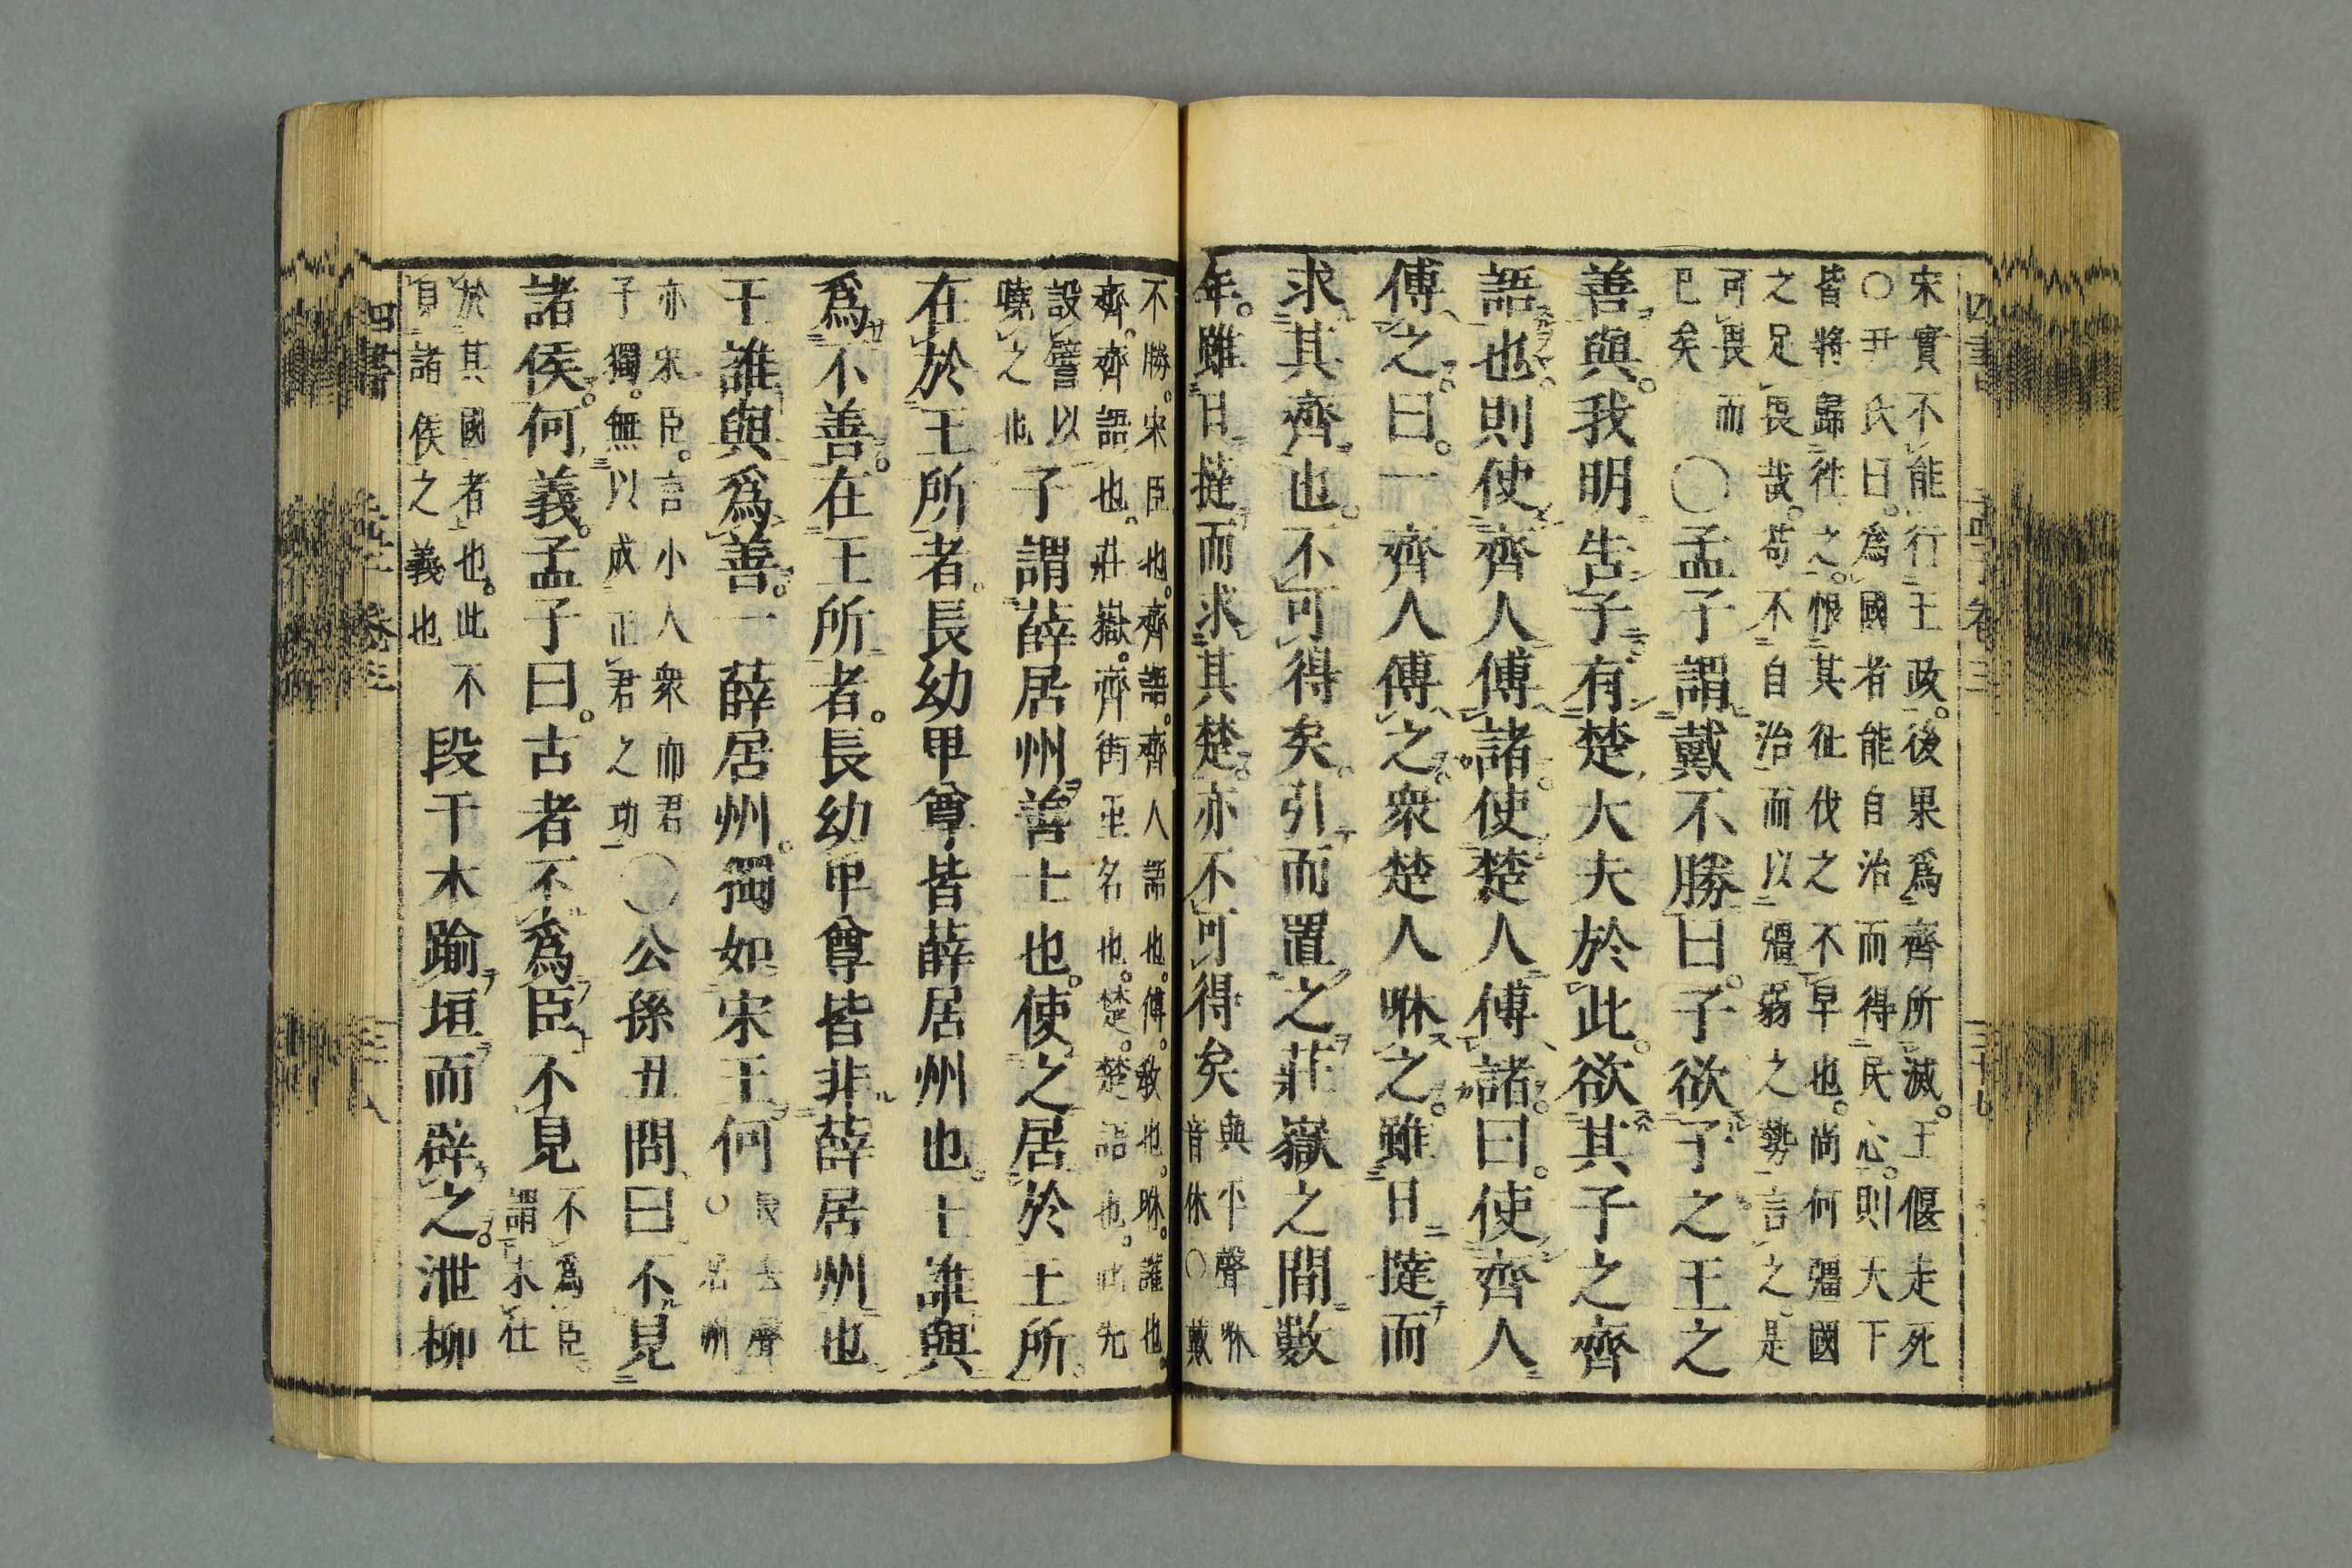 宋實不能行王政。後果爲齊所滅。王偃走死
○尹氏曰。爲國者能自治而得民心。則天下
皆將歸往之。恨其征伐之不早也。尚何彊國
之足畏哉。苟不自治而以彊弱之勢言之。是
可畏而
已矣
○孟子謂戴不勝曰。子欲子之王之
善與。我明告子。有楚大夫於此。欲其子之齊
語也。則使齊人傅諸。使楚人傅諸。曰。使齊人
傅之。曰。一齊人傅之。衆楚人咻之。雖日撻而
求其齊也。不可得矣。引而置之莊嶽之間數
年。雖日撻而求其楚。亦不可得矣
與平聲咻
音休○戴
不勝。宋臣也。齊語。齊人語也。傅。敎也。咻。讙也。
齊。齊語也。莊嶽。齊街里名也。楚。楚語也。此先
設譬以
曉之也
子謂薛居州。善士也。使之居於王所。
在於王所者。長幼卑尊皆薛居州也。王誰與
爲不善。在王所者。長幼卑尊皆非薛居州也
王誰與爲善。一薛居州。獨如宋王何
長上聲
○居州
亦宋臣。言小人衆而君
子獨。無以成正君之功
○公孫丑問曰不見
諸侯。何義。孟子曰。古者不爲臣不見
不爲臣
謂未仕
於其國者也。此不
見諸侯之義也
段干木踰垣而辟之。泄柳
四書
孟子卷三
三十七
四書
孟子
卷三
三八